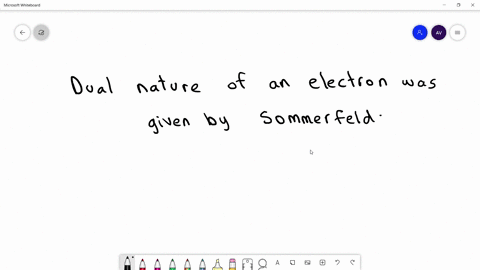 Microsoft Whiteboard
AV
Dual nature of an electron was
given by Sommerfeld.
A